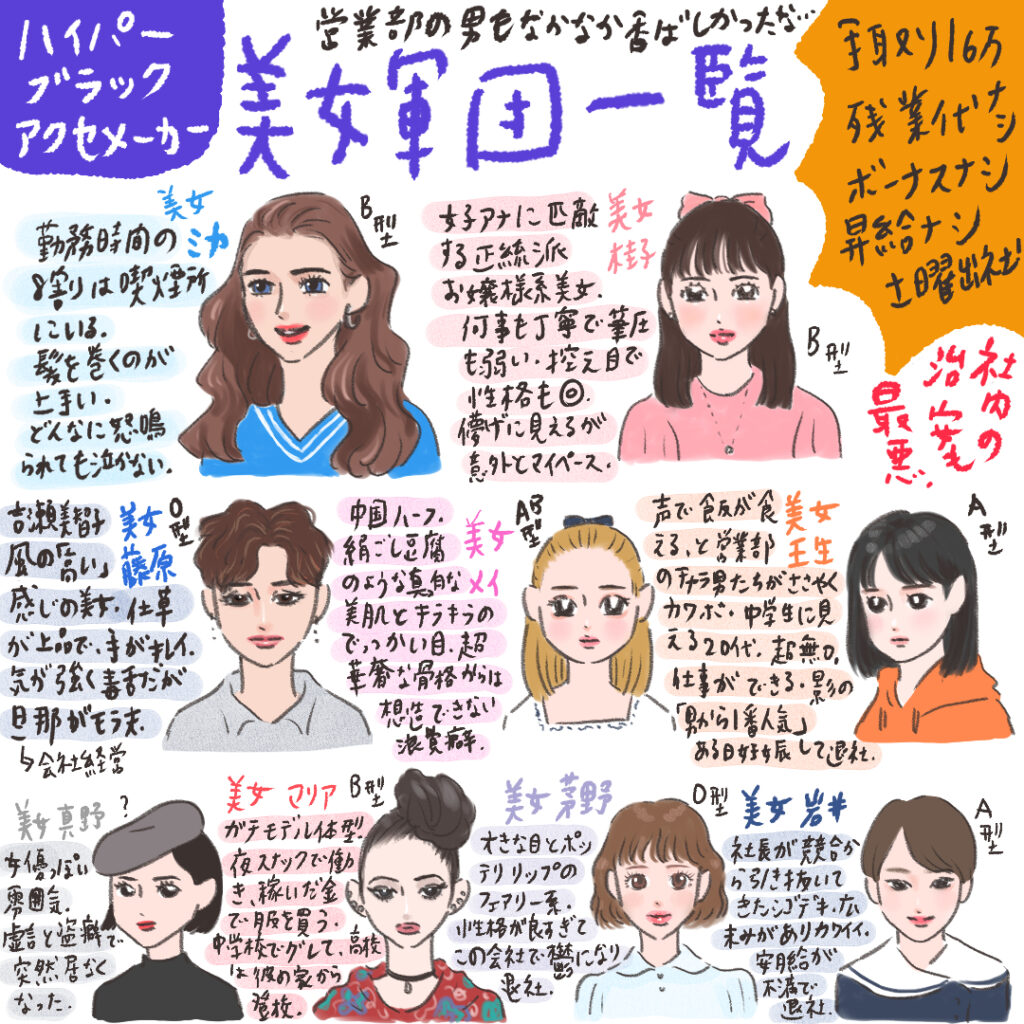 ハイパー
ブラック
アクセメーカー
営業部の男もなかなか香ばしかったな…
美女軍団一覧
手取り16万
残業代ナシ
ボーナスナシ
昇給ナシ
土曜出社
社内の
治安も
最悪。
美女
ミカ
B型
勤務時間の
8割りは喫煙所
にいる。
髪を巻くのが
上手い。
どんなに怒鳴
られても泣かない。
美女
桂子
B型
女子アナに匹敵
する正統派
お嬢様系美女。
何事も丁寧で筆圧
も弱い。控え目で
性格も◎。
儚げに見えるが
意外とマイペース。
美女
藤原
O型
吉瀬美智子
風の「高い」
感じの美女。仕草
が上品で、手がキレイ。
気が強く毒舌だが
旦那がモラ夫。
↳会社経営
美女
メイ
AB型
中国ハーフ。
絹ごし豆腐
のような真白な
美肌とキラキラの
でっかい目。超
華奢な骨格からは
想造できない
浪費癖。
美女
壬生
A型
声で飯が食
える、と営業部
のチャラ男たちがささやく
カワボ。中学生に見
える20代。超無口。
仕事ができる。影の
「男から1番人気」
ある日妊娠して退社。
美女 真野
?
女優っぽい
雰囲気。
虚言と盗癖で
突然居なく
なった。
美女 マリア
B型
ガチモデル体型。
夜スナックで働
き、稼いだ金
で服を買う。
中学校でグレて、高校
は彼の家から
登校。
美女 茅野
O型
大きな目とポッ
テリリップの
フェアリー系。
性格が良すぎて
この会社で鬱になり
退社。
美女 岩井
A型
社長が競合か
ら引き抜いて
きたシゴデキ。広
末みがありカワイイ。
安月給が
不満で
退社。